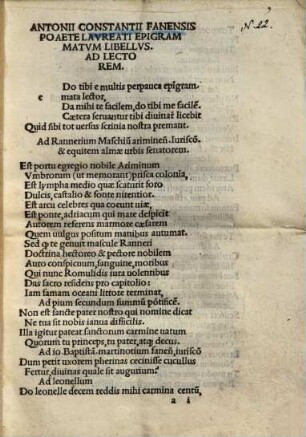 N. 22.
ANTONII CONSTANTII FANENSIS
POAETE LAVREATI EPIGRAM
MATVM LIBELLVS.
AD LECTO
REM.
Do tibi e multis perpauca epi͂gram⸗
e mata lector,
Da mihi te facilem, do tibi me facile͂.
Cætera seruantur tibi diuinare licebit
Quid sibi tot uersus scrinia nostra premant.
Ad Rannerium Maschiu͂ arimine͂. Iurisco͂.
& equitem almæ urbis senatorem.
Est portu egregio nobile Ariminum
Vmbrorum (ut memorant) prisca colonia,
Est lympha medio quæ scaturit foro
Dulcis, castalio & fonte nitentior.
Est arcu celebres qua coeunt uiæ,
Est ponte, adriacum qui mare despicit
Autorem referens marmore cæsarem
Quem uulgus positum manibus autumat.
Sed q te genuit mascule Ranneri
Doctrina, hectoreo & pectore nobilem
Auro conspicuum, sanguine, moribus
Qui nunc Romulidis iura uolentibus
Das sacro residens pro capitolio:
Iam famam oceani littore terminat,
Ad pium secundum summu͂ po͂tifice͂.
Non est sancte pater nostro qui nomine dicat
Ne tua sit nobis ianua difficilis.
Illa igitur pateat sanctorum carmine uatum
Quorum tu princeps, tu pater, atq; decus.
Ad io. Baptista͂. martinotium fane͂. iurisco͂
Dum petit uxorem pherinas cecinisse cucullus
Fertur, diuinas quale sit augurium?
Ad leonellum
Do leonelle decem reddis mihi carmina centu͂,
a i